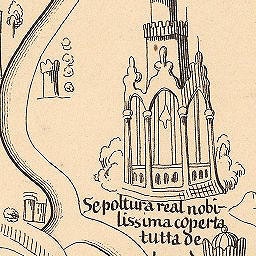 Sepoltura real nobi-
lissima coperta
tutta de